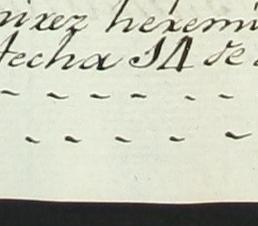 nirez heremi
fecha 14 de